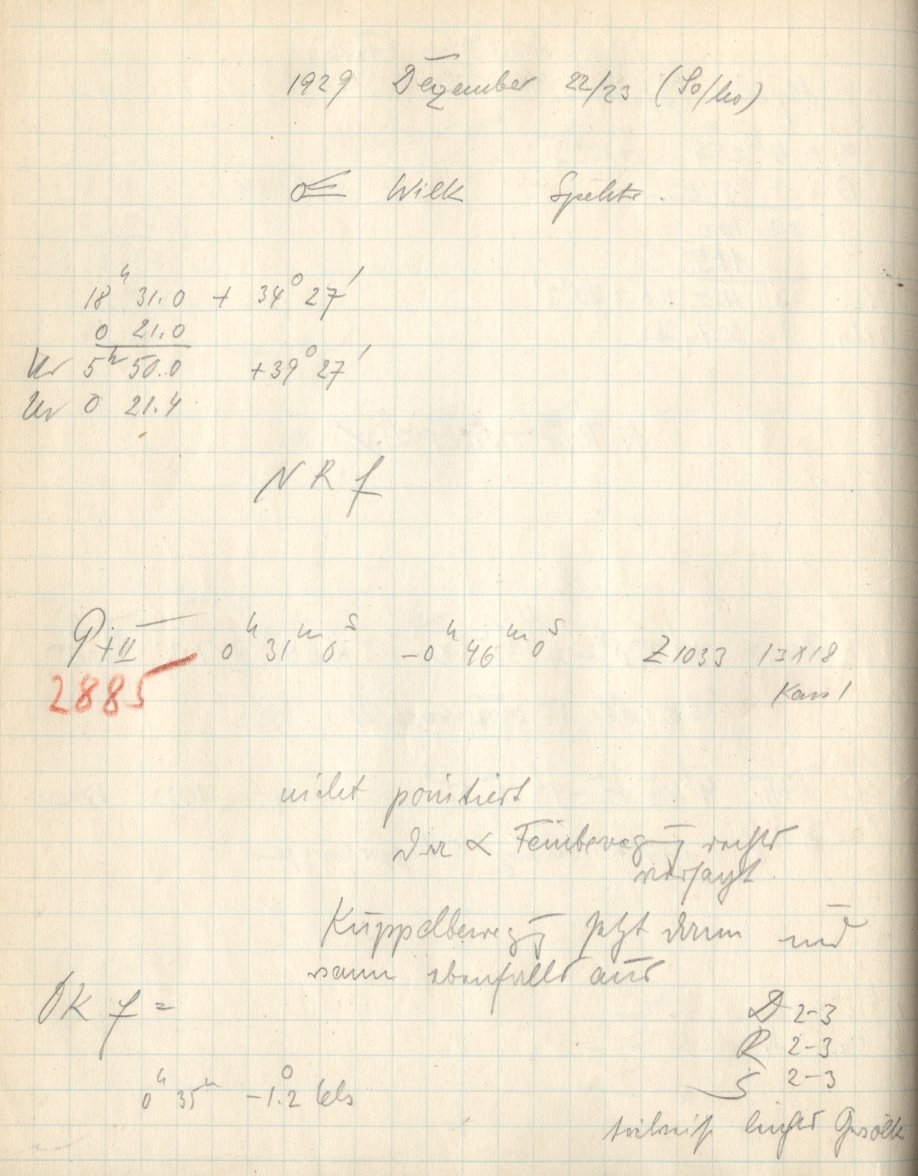 1929 Dezember 22/23 (So/Mo)
☄ Wilk Spektr.
18ʰ 31.0 + 34° 27′
0 21.0
Ur 5ʰ 50.0 +39° 27′
Ur 0 21.4
N R f
P + II 0ʰ 31ᵐ 0ˢ -0ʰ 46ᵐ 0ˢ Z 1033 13x18
2885 Kass 1
nicht pointiert
da α Feinbewegung rechts
versagt.
Kuppelbewegg setzt dann und
wann ebenfalls aus
OK f =
D 2-3
R 2-3
S 2-3
0ʰ 35ᵐ -1.2° Cels
teilweise leicht Gewölk